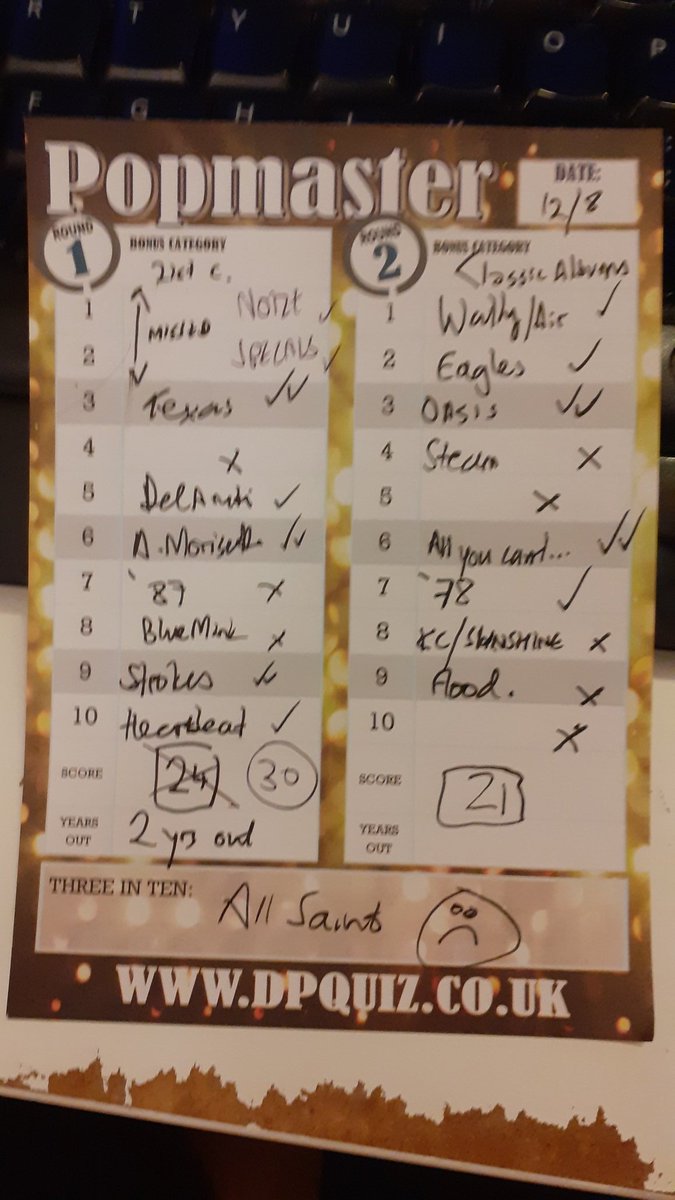 R T Y U I O P
F G H
Popmaster
DATE:
12/8
ROUND 1
BONUS CATEGORY
21st c.
1 Nozt ✓
MISSED
2 SPECIALS ✓
3 Texas ✓✓
4 X
5 Del Amitri ✓
6 A. Morisette ✓✓
7 '87 X
8 Blue Mink X
9 Strokes ✓
10 Heartbeat ✓
SCORE 24 30
YEARS OUT 2 yrs out
ROUND 2
BONUS CATEGORY
Classic Albums
1 Wally/Air ✓
2 Eagles ✓
3 OASIS ✓✓
4 Steam X
5 X
6 All you cant... ✓✓
7 '78 ✓
8 KC/SUNSHINE X
9 Flood. X
10 X
SCORE 21
YEARS OUT
THREE IN TEN: All Saints
WWW.DPQUIZ.CO.UK